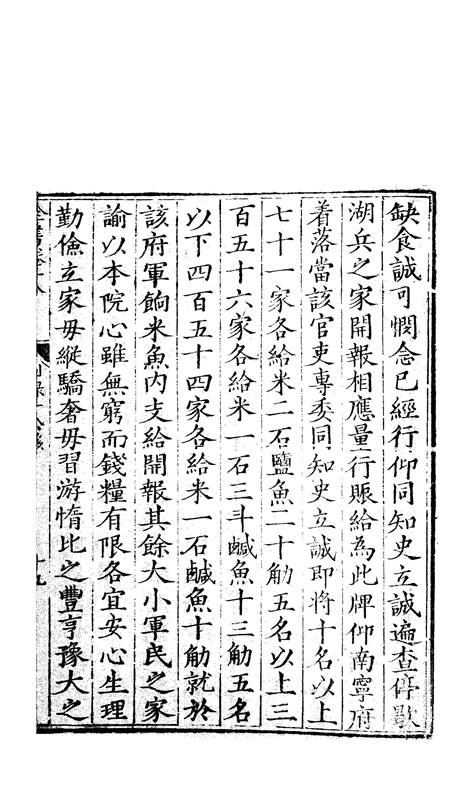 缺食誠可憫念已經行仰同知史立誠遍查停歇
湖兵之家開報相應量行賑給為此牌仰南寧府
着落當該官吏專委同知史立誠即將十名以上
七十一家各給米二石鹽魚二十觔五名以上三
百五十六家各給米一石三斗鹹魚十三觔五名
以下四百五十四家各給米一石鹹魚十觔就於
該府軍餉米魚内支給開報其餘大小軍民之家
諭以本院心雖無窮而錢糧有限各宜安心生理
勤儉立家毋縱驕奢毋習游惰比之豐亨豫大之